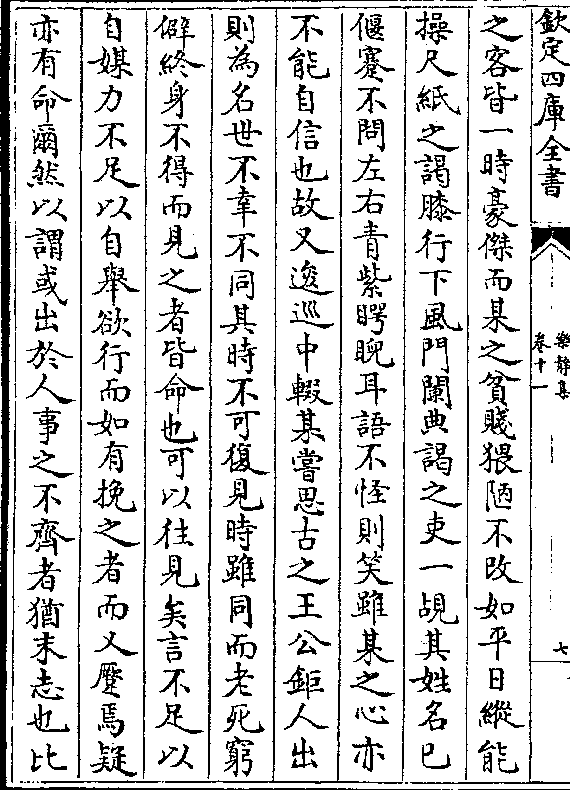 欽定四庫全書
樂靜集
卷十一
七
之客皆一時豪傑而某之貧賤猥陋不改如平日縱能
操尺紙之謁膝行下風門闌典謁之吏一覘其姓名已
偃蹇不問左右青紫睥睨耳語不怪則笑雖某之心亦
不能自信也故又逡巡中輟某嘗思古之王公鉅人出
則為名世不幸不同其時不可復見時雖同而老死窮
僻終身不得而見之者皆命也可以往見矣言不足以
自媒力不足以自舉欲行而如有挽之者而又蹙焉疑
亦有命爾然以謂或出於人事之不齊者猶末志也比